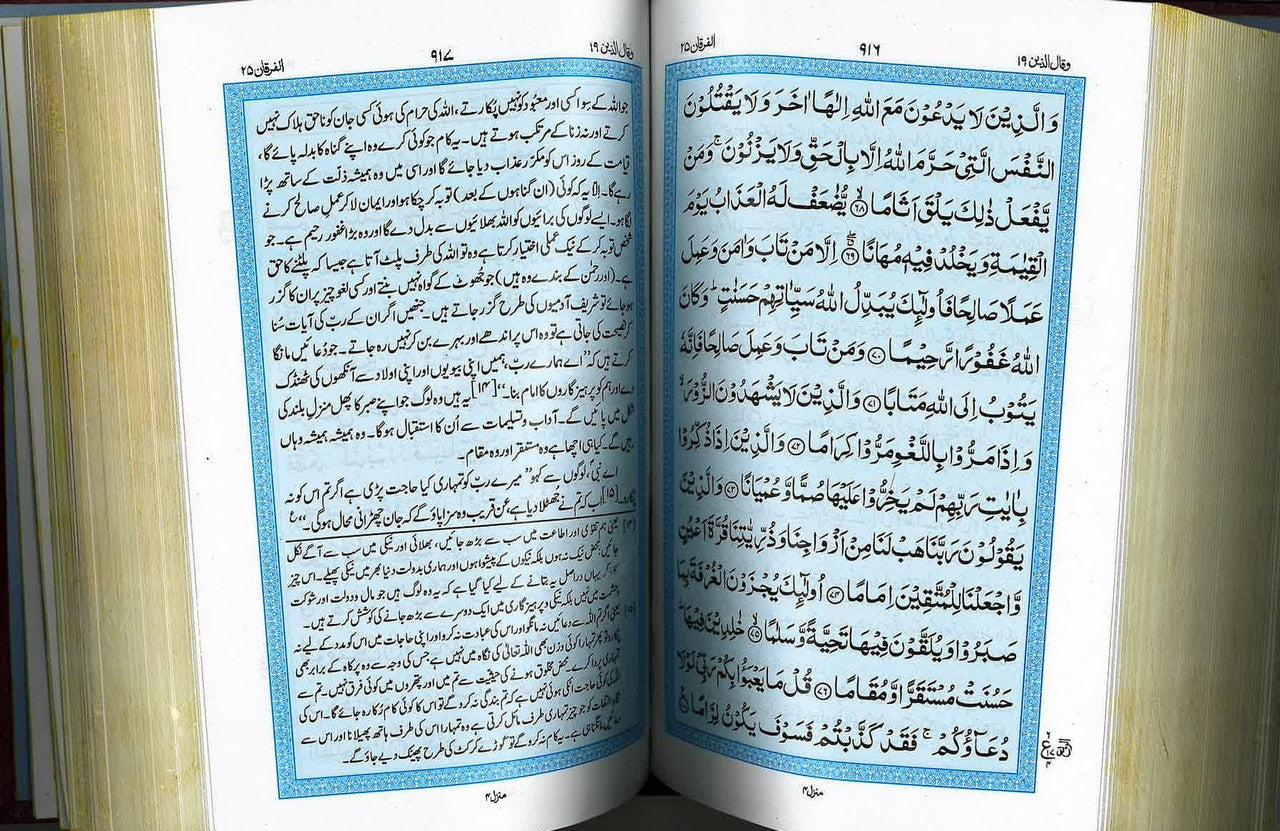 وقال الذین ۱۹
۹۱۶
الفرقان ۲۵
وَالَّذِیْنَ لَا یَدْعُوْنَ مَعَ اللّٰهِ اِلٰهًا اٰخَرَ وَلَا یَقْتُلُوْنَ
النَّفْسَ الَّتِیْ حَرَّمَ اللّٰهُ اِلَّا بِالْحَقِّ وَلَا یَزْنُوْنَ ۚ وَمَنْ
یَّفْعَلْ ذٰلِكَ یَلْقَ اَثَامًا ﴿۶۸﴾ یُّضٰعَفْ لَهُ الْعَذَابُ یَوْمَ
الْقِیٰمَةِ وَیَخْلُدْ فِیْهٖ مُهَانًا ﴿۶۹﴾ اِلَّا مَنْ تَابَ وَاٰمَنَ وَعَمِلَ
عَمَلًا صَالِحًا فَاُولٰٓئِكَ یُبَدِّلُ اللّٰهُ سَیِّاٰتِهِمْ حَسَنٰتٍ ؕ وَكَانَ
اللّٰهُ غَفُوْرًا رَّحِیْمًا ﴿۷۰﴾ وَمَنْ تَابَ وَعَمِلَ صَالِحًا فَاِنَّهٗ
یَتُوْبُ اِلَی اللّٰهِ مَتَابًا ﴿۷۱﴾ وَالَّذِیْنَ لَا یَشْهَدُوْنَ الزُّوْرَ ۙ
وَاِذَا مَرُّوْا بِاللَّغْوِ مَرُّوْا كِرَامًا ﴿۷۲﴾ وَالَّذِیْنَ اِذَا ذُكِّرُوْا
بِاٰیٰتِ رَبِّهِمْ لَمْ یَخِرُّوْا عَلَیْهَا صُمًّا وَّعُمْیَانًا ﴿۷۳﴾ وَالَّذِیْنَ
یَقُوْلُوْنَ رَبَّنَا هَبْ لَنَا مِنْ اَزْوَاجِنَا وَذُرِّیّٰتِنَا قُرَّةَ اَعْیُنٍ
وَّاجْعَلْنَا لِلْمُتَّقِیْنَ اِمَامًا ﴿۷۴﴾ اُولٰٓئِكَ یُجْزَوْنَ الْغُرْفَةَ بِمَا
صَبَرُوْا وَیُلَقَّوْنَ فِیْهَا تَحِیَّةً وَّسَلٰمًا ﴿۷۵﴾ خٰلِدِیْنَ فِیْهَا ؕ
حَسُنَتْ مُسْتَقَرًّا وَّمُقَامًا ﴿۷۶﴾ قُلْ مَا یَعْبَؤُا بِكُمْ رَبِّیْ لَوْلَا
دُعَآؤُكُمْ ۚ فَقَدْ كَذَّبْتُمْ فَسَوْفَ یَكُوْنُ لِزَامًا ﴿۷۷﴾
منزل ۴
وقال الذین ۱۹
۹۱۷
الفرقان ۲۵
جو اللہ کے سوا کسی اور معبود کو نہیں پُکارتے، اللہ کی حرام کی ہوئی کسی جان کو ناحق ہلاک نہیں
کرتے اور نہ زنا کے مرتکب ہوتے ہیں۔ یہ کام جو کوئی کرے وہ اپنے گناہ کا بدلہ پائے گا،
قیامت کے روز اس کو مکرّر عذاب دیا جائے گا اور اسی میں وہ ہمیشہ ذلّت کے ساتھ پڑا
رہے گا۔ اِلّا یہ کہ کوئی (ان گناہوں کے بعد) توبہ کر چکا ہو اور ایمان لا کر عملِ صالح کرنے
لگا ہو۔ ایسے لوگوں کی برائیوں کو اللہ بھلائیوں سے بدل دے گا اور وہ بڑا غفور رحیم ہے۔ جو
شخص توبہ کر کے نیک عملی اختیار کرتا ہے وہ تو اللہ کی طرف پلٹ آتا ہے جیسا کہ پلٹنے کا حق
ہے۔ (اور رحمٰن کے بندے وہ ہیں) جو جُھوٹ کے گواہ نہیں بنتے اور کسی لغو چیز پر ان کا گزر
ہو جائے تو شریف آدمیوں کی طرح گزر جاتے ہیں۔ جنھیں اگر ان کے ربّ کی آیات سُنا
کر نصیحت کی جاتی ہے تو وہ اس پر اندھے اور بہرے بن کر نہیں رہ جاتے۔ جو دُعائیں مانگا
کرتے ہیں کہ ”اے ہمارے ربّ، ہمیں اپنی بیویوں اور اپنی اولاد سے آنکھوں کی ٹھنڈک
دے اور ہم کو پرہیزگاروں کا امام بنا۔“ [۱۴] یہ ہیں وہ لوگ جو اپنے صبر کا پھل منزلِ بلند کی
شکل میں پائیں گے۔ آداب و تسلیمات سے اُن کا استقبال ہوگا۔ وہ ہمیشہ ہمیشہ وہاں
رہیں گے۔ کیا ہی اچھا ہے وہ مستقر اور وہ مقام۔
اے نبیؐ، لوگوں سے کہو ”میرے ربّ کو تمہاری کیا حاجت پڑی ہے اگر تم اس کو نہ
پکارو۔ [۱۵] اب کہ تم نے جُھٹلا دیا ہے، عن قریب وہ سزا پاؤ گے کہ جان چھڑانی محال ہوگی۔“
[۱۴] یعنی ہم تقویٰ اور اطاعت میں سب سے بڑھ جائیں، بھلائی اور نیکی میں سب سے آگے نکل
جائیں، محض نیک نہ ہوں بلکہ نیکوں کے پیشوا ہوں اور ہماری بدولت دنیا بھر میں نیکی پھیلے۔ اس چیز
کا ذکر یہاں دراصل یہ بتانے کے لیے کیا گیا ہے کہ یہ وہ لوگ ہیں جو مال و دولت اور شوکت
و حشمت میں نہیں بلکہ نیکی و پرہیزگاری میں ایک دوسرے سے بڑھ جانے کی کوشش کرتے ہیں۔
[۱۵] یعنی اگر تم اللہ سے دعائیں نہ مانگو اور اس کی عبادت نہ کرو اور اپنی حاجات میں اس کو مدد کے لیے نہ
پکارو تو پھر تمہارا کوئی وزن بھی اللہ تعالیٰ کی نگاہ میں نہیں ہے جس کی وجہ سے وہ پرِکاہ کے برابر بھی
تمہاری پروا کرے۔ محض مخلوق ہونے کی حیثیت سے تم میں اور پتھروں میں کوئی فرق نہیں۔ تم سے
اللہ کی کوئی حاجت اٹکی ہوئی نہیں ہے کہ تم بندگی نہ کرو گے تو اس کا کوئی کام رُکا رہ جائے گا۔ اس کی
نگاہِ التفات کو جو چیز تمہاری طرف مائل کرتی ہے وہ تمہارا اس کی طرف ہاتھ پھیلانا اور اس سے
دعائیں مانگنا ہی ہے۔ یہ کام نہ کرو گے تو کوڑے کرکٹ کی طرح پھینک دیے جاؤ گے۔
منزل ۴